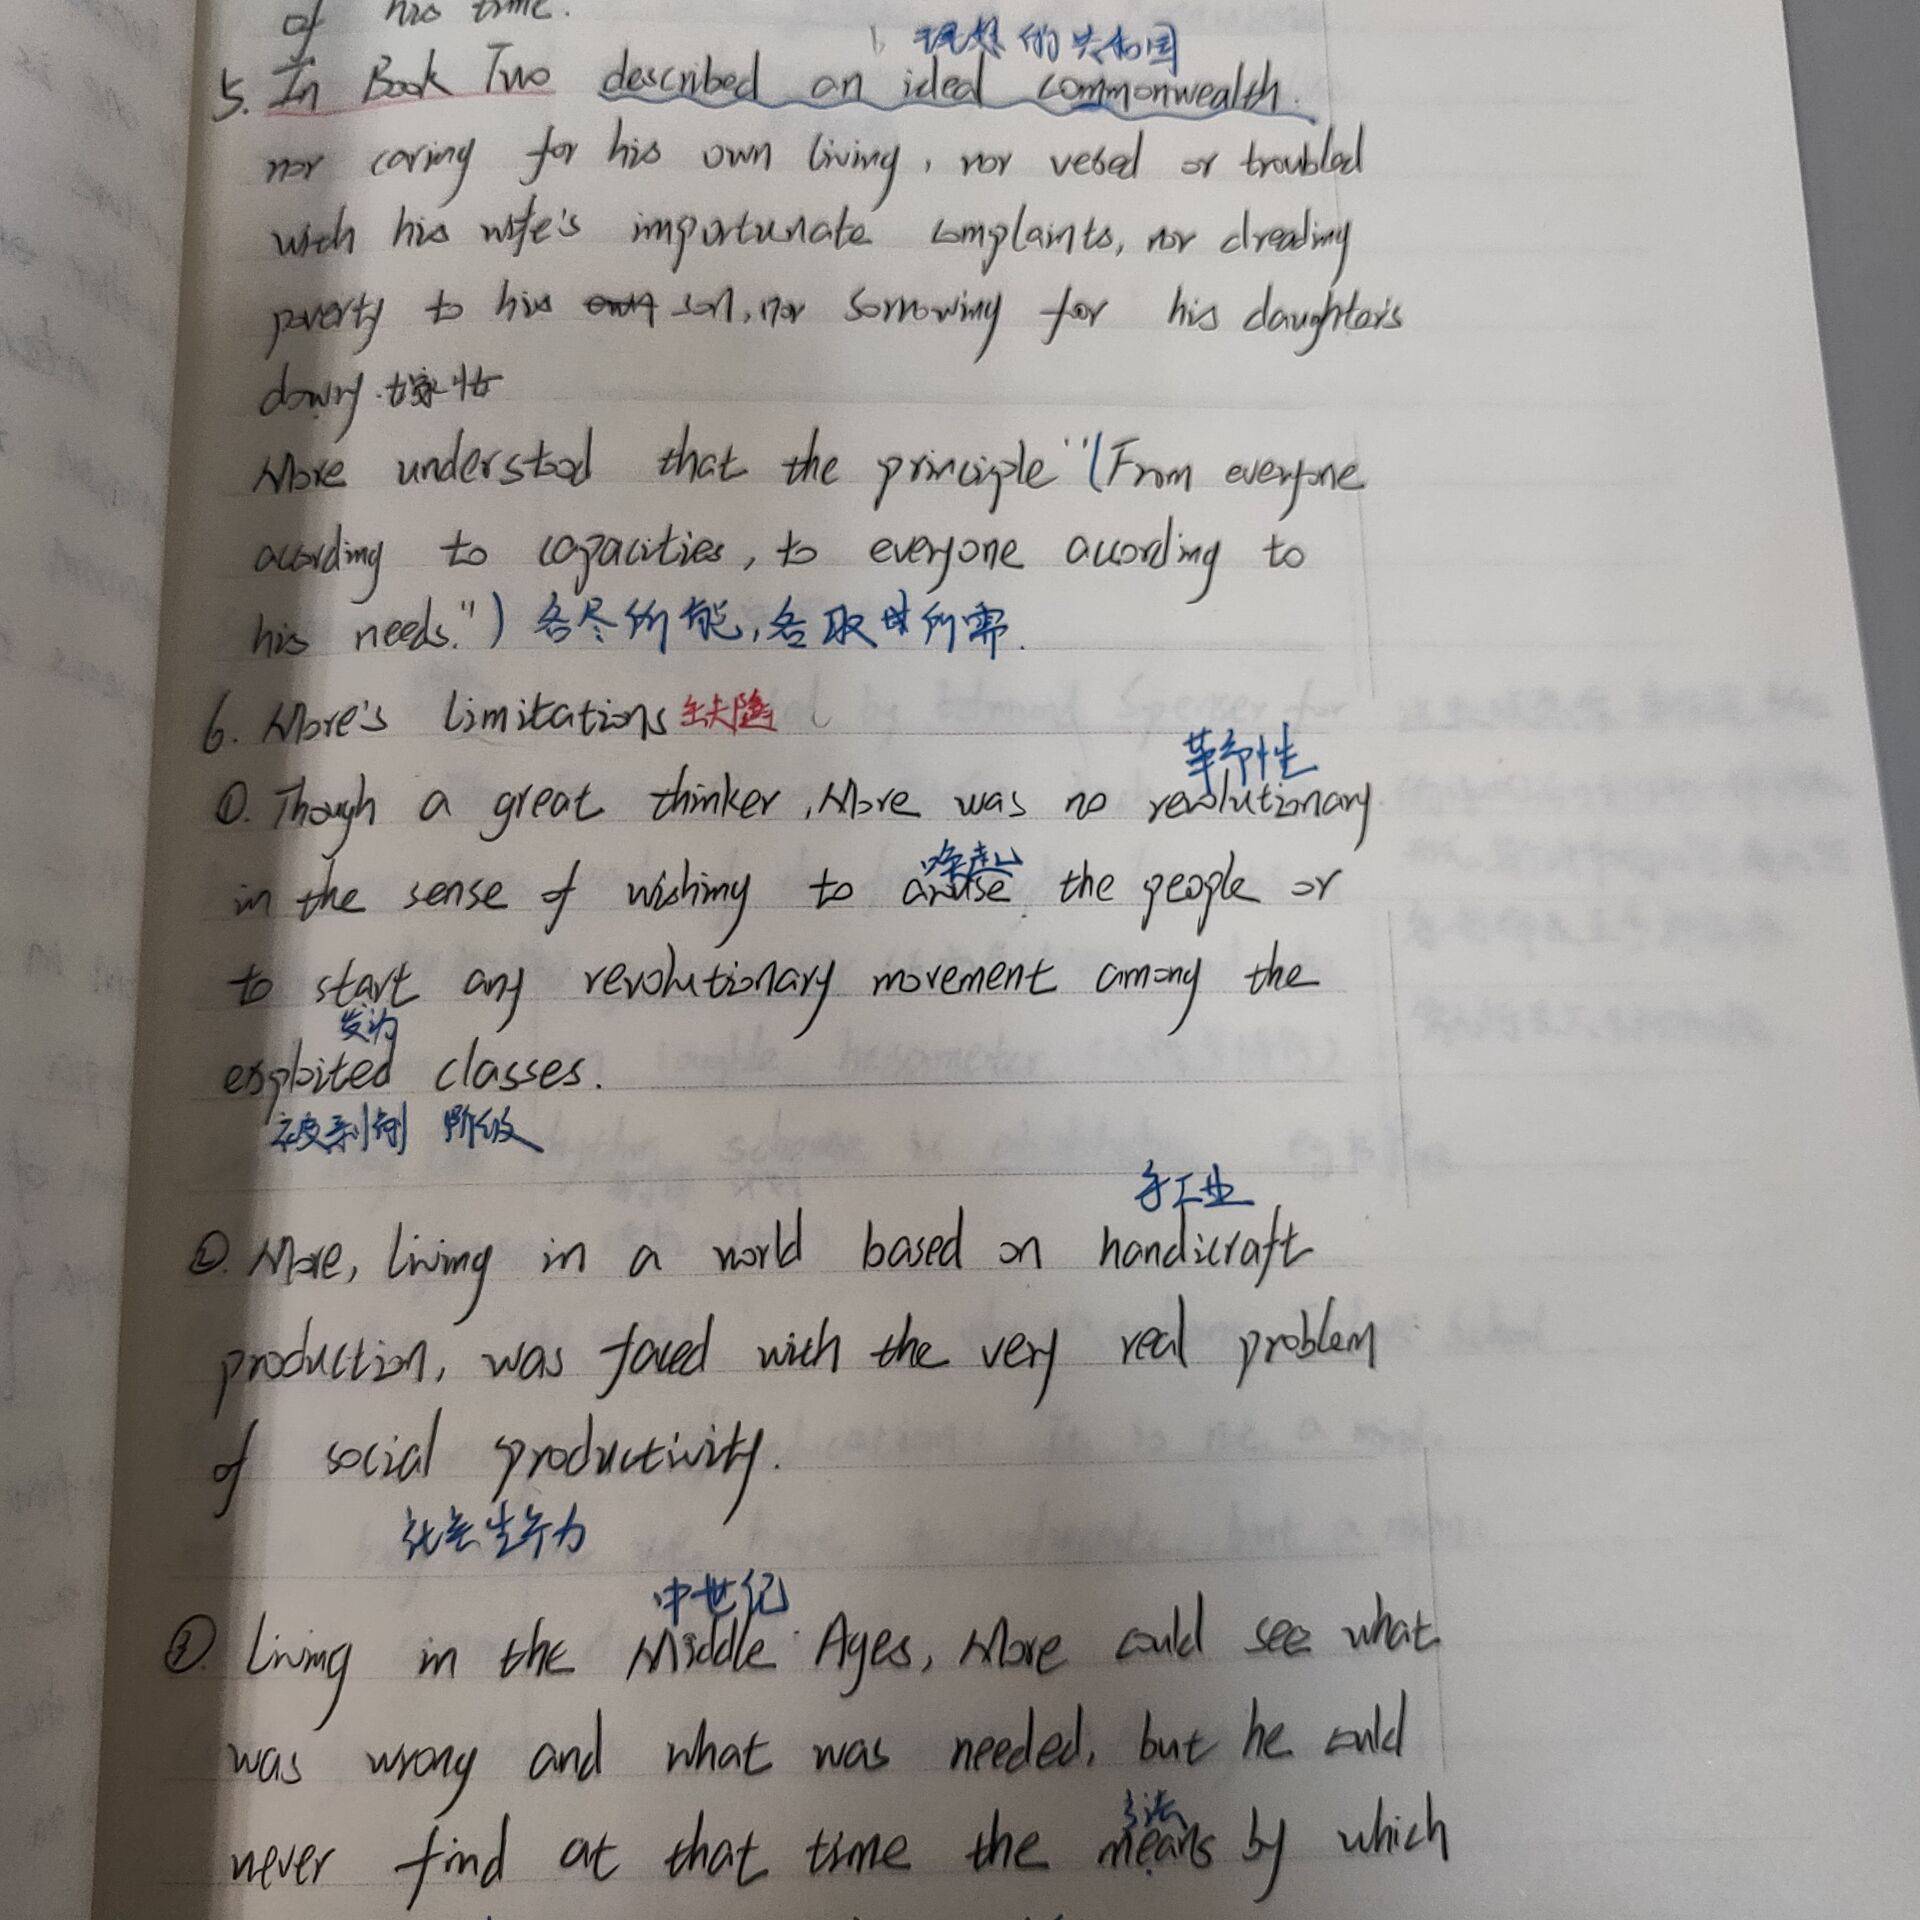 of his time.
理想的共和国
5. In Book Two described an ideal commonwealth.
nor caring for his own living, nor vexed or troubled
with his wife's importunate complaints, nor dreading
poverty to his own son, nor sorrowing for his daughter's
dowry. 嫁妆
More understood that the principle "(From everyone
acording to capacities, to everyone acording to
his needs.") 各尽所能,各取其所需.
6. More's limitations 缺陷
革命性
①. Though a great thinker, More was no revolutionary
唤起
in the sense of wishing to arouse the people or
to start any revolutionary movement among the
发动
exploited classes.
被剥削 阶级
手工业
②. More, living in a world based on handicraft
production, was faced with the very real problem
of social productivity.
社会生产力
中世纪
③. Living in the Middle Ages, More could see what
was wrong and what was needed, but he could
方法
never find at that time the means by which